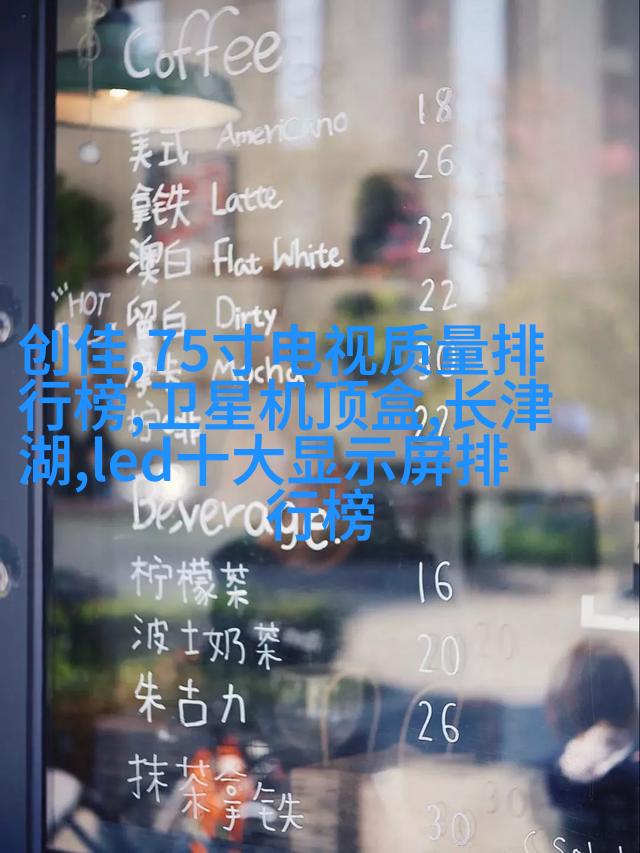 Coffee
美式 Americano 18
拿铁 Latte 26
澳白 Flat White 22
HOT
留白 Dirty 22
创佳,75寸电视质量排
摩卡 Mocha 30
行榜,卫星机顶盒,长津
22
湖,led十大显示屏排
行榜
Beverage.
柠檬茶 16
波士奶茶 20
朱古力 26
抹茶拿铁 30